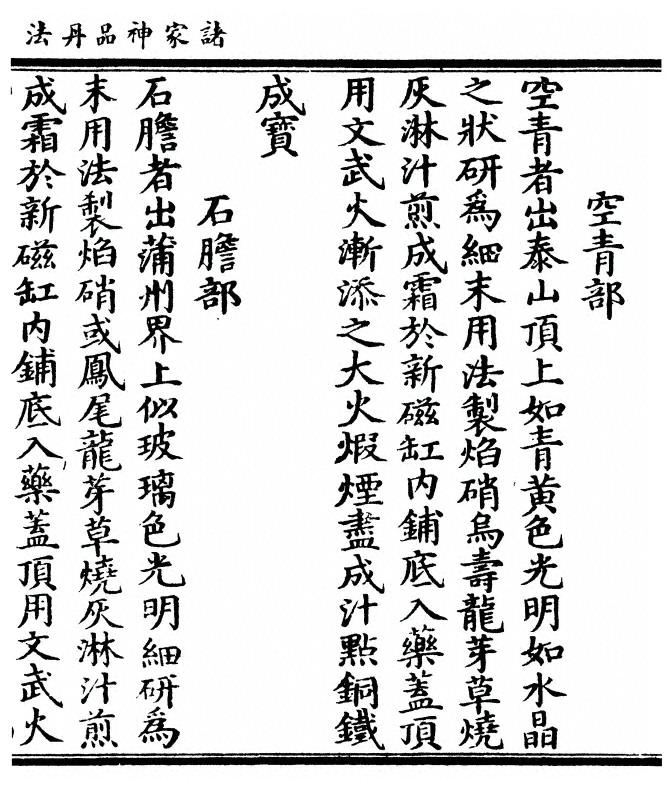 諸家神品丹法
空青部
空青者出泰山頂上如青黃色光明如水晶
之狀研爲細末用法製焰硝烏壽龍芽草燒
灰淋汁煎成霜於新磁缸内鋪底入藥蓋頂
用文武火漸添之大火煆煙盡成汁點銅鐵
成寶
石膽部
石膽者出蒲州界上似玻璃色光明細研爲
末用法製焰硝或鳳尾龍芽草燒灰淋汁煎
成霜於新磁缸内鋪底入藥蓋頂用文武火